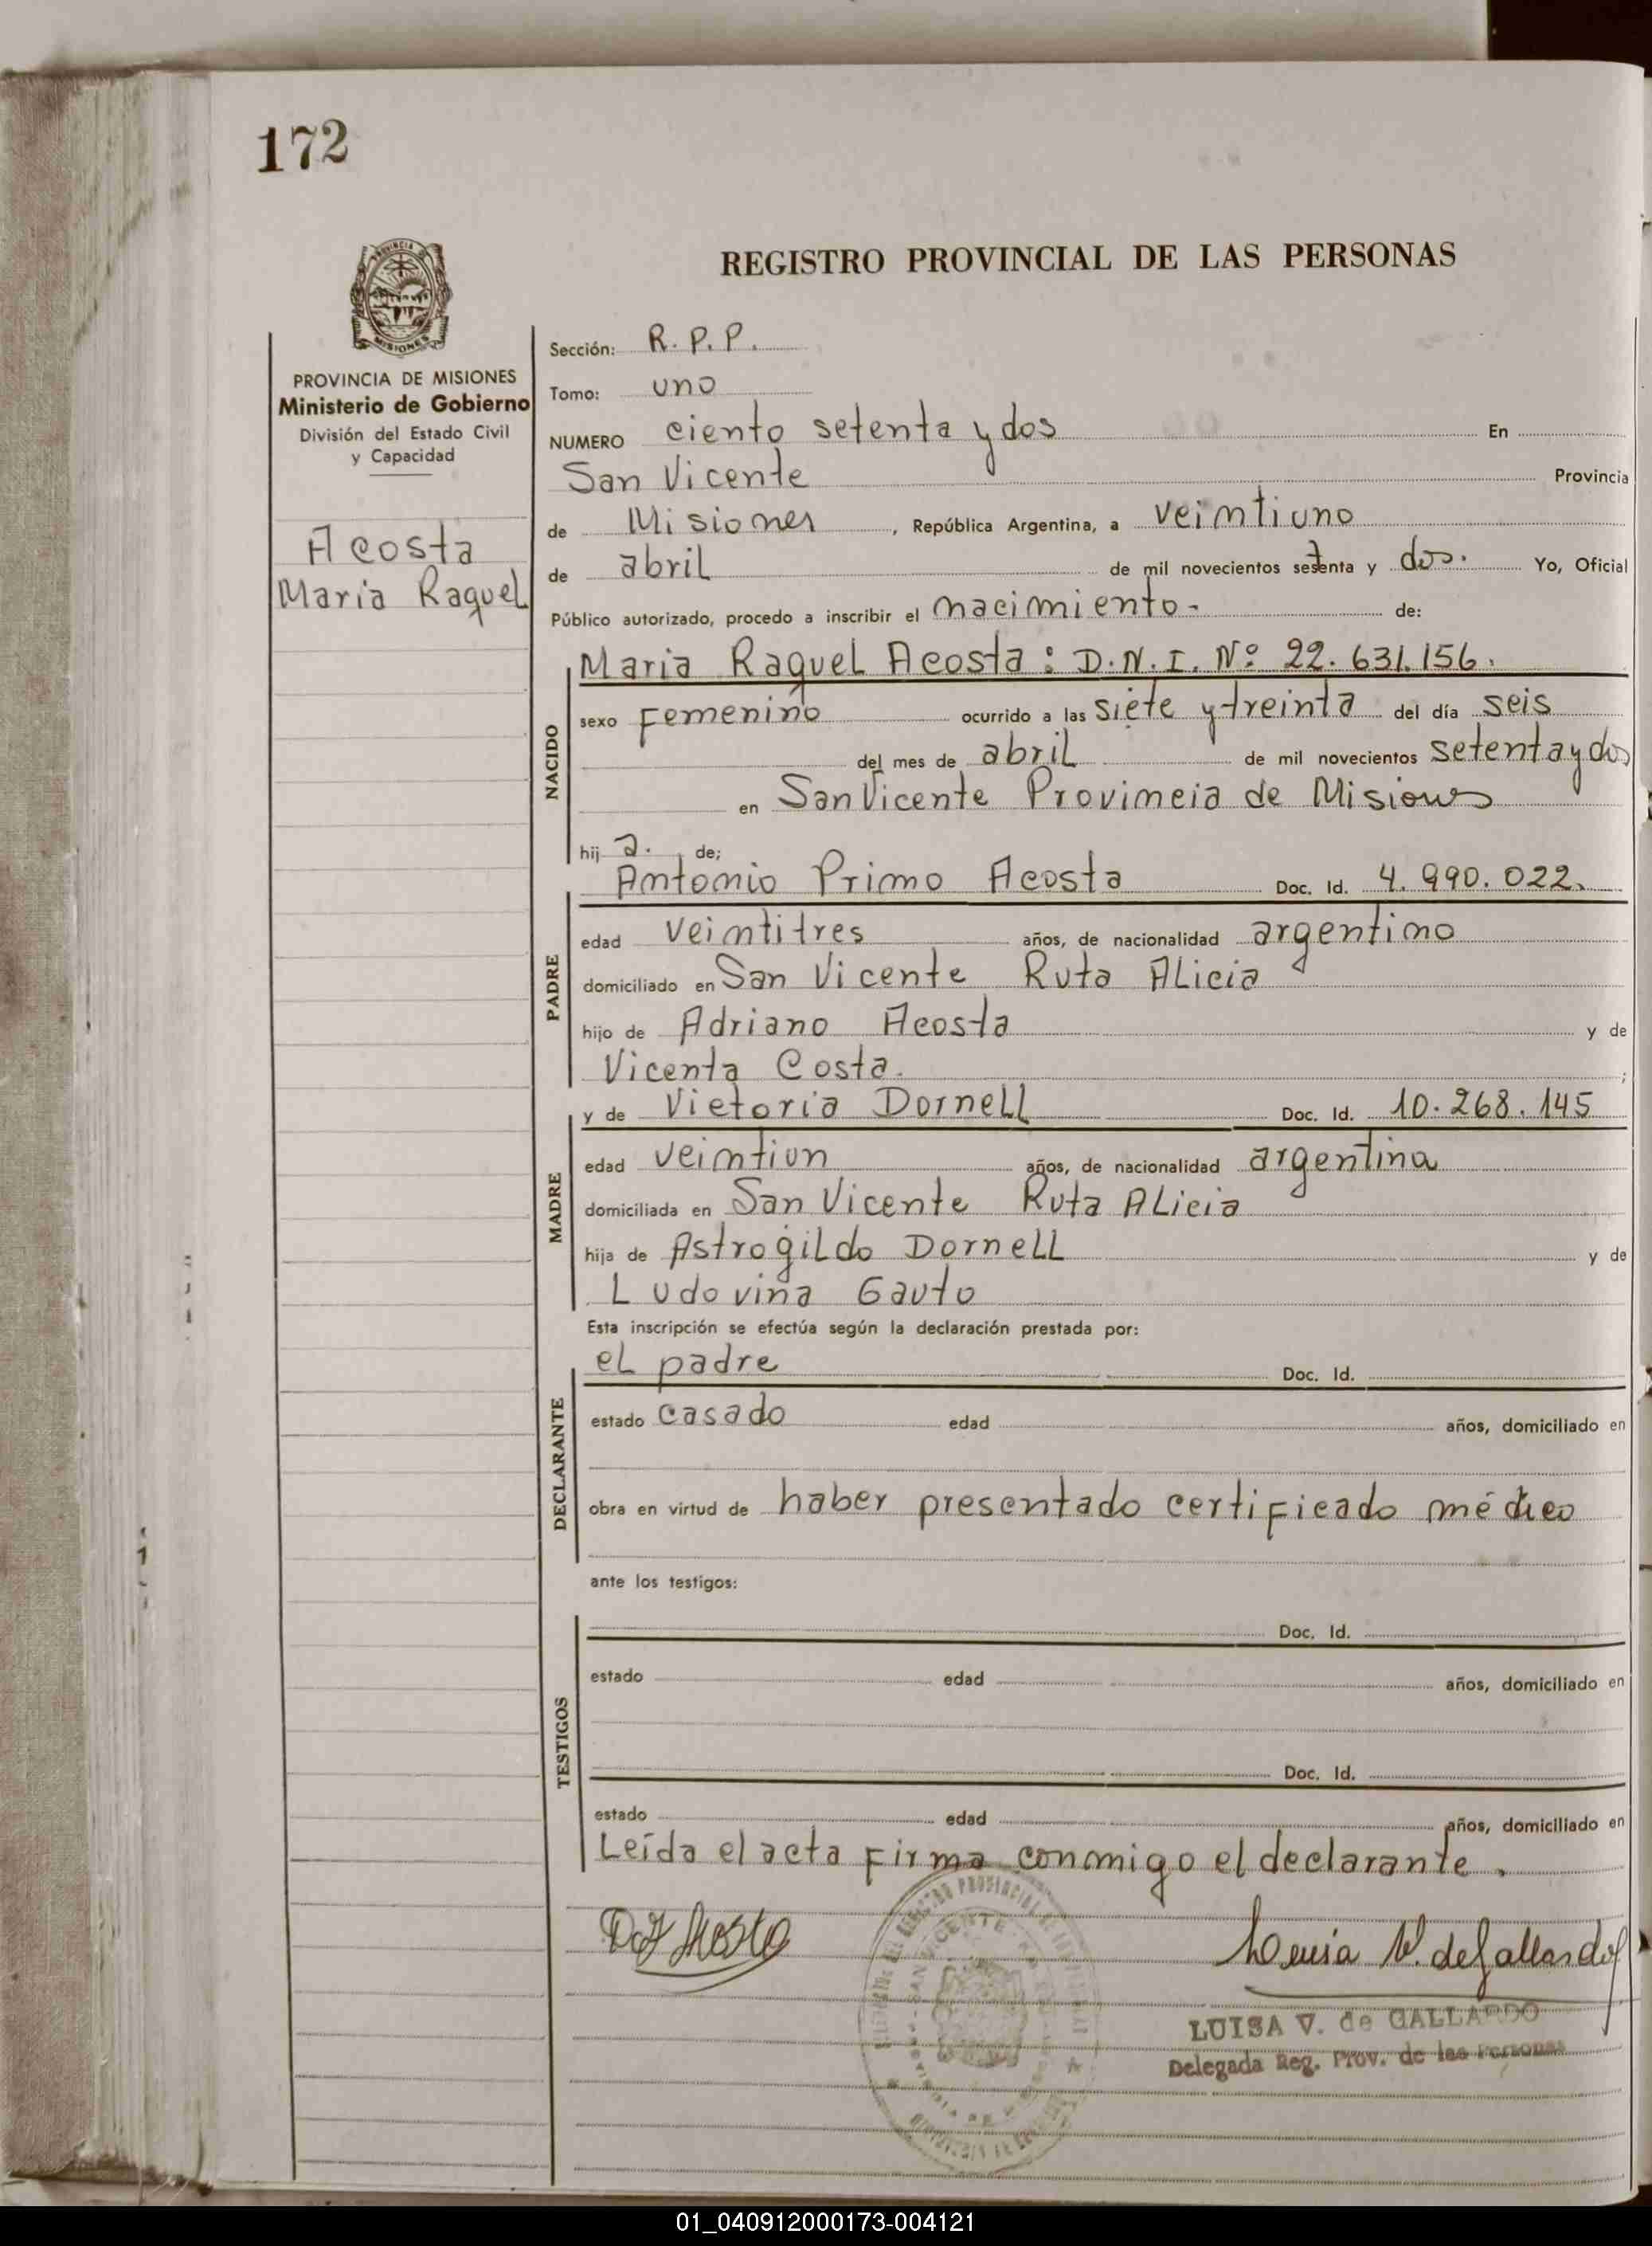 172
REGISTRO PROVINCIAL DE LAS PERSONAS
MISIONES
PROVINCIA DE MISIONES
Ministerio de Gobierno
División del Estado Civil
y Capacidad
Acosta
Maria Raquel
Sección: R. P. P.
Tomo: uno
NUMERO ciento setenta y dos En
San Vicente Provincia
de Misiones, República Argentina, a veintiuno
de abril de mil novecientos setenta y dos. Yo, Oficial
Público autorizado, procedo a inscribir el nacimiento- de:
NACIDO
Maria Raquel Acosta: D.N.I. Nº 22.631.156.
sexo Femenino ocurrido a las siete y treinta del día seis
del mes de abril de mil novecientos setenta y dos
en San Vicente Provincia de Misiones
hij a. de;
PADRE
Antonio Primo Acosta Doc. Id. 4.990.022.
edad veintitres años, de nacionalidad argentino
domiciliado en San Vicente Ruta Alicia
hijo de Adriano Acosta y de
Vicenta Costa. ;
MADRE
y de Victoria Dornell Doc. Id. 10.268.145
edad veintiun años, de nacionalidad argentina
domiciliada en San Vicente Ruta Alicia
hija de Astrogildo Dornell y de
Ludovina Gauto
Esta inscripción se efectúa según la declaración prestada por:
DECLARANTE
el padre Doc. Id.
estado casado edad años, domiciliado en
obra en virtud de haber presentado certificado médico
ante los testigos:
TESTIGOS
Doc. Id.
estado edad años, domiciliado en
Doc. Id.
estado edad años, domiciliado en
Leída el acta firma conmigo el declarante.
Acosta
Luisa V. de Gallardo
LUISA V. de GALLARDO
Delegada Reg. Prov. de las Personas
01_040912000173-004121